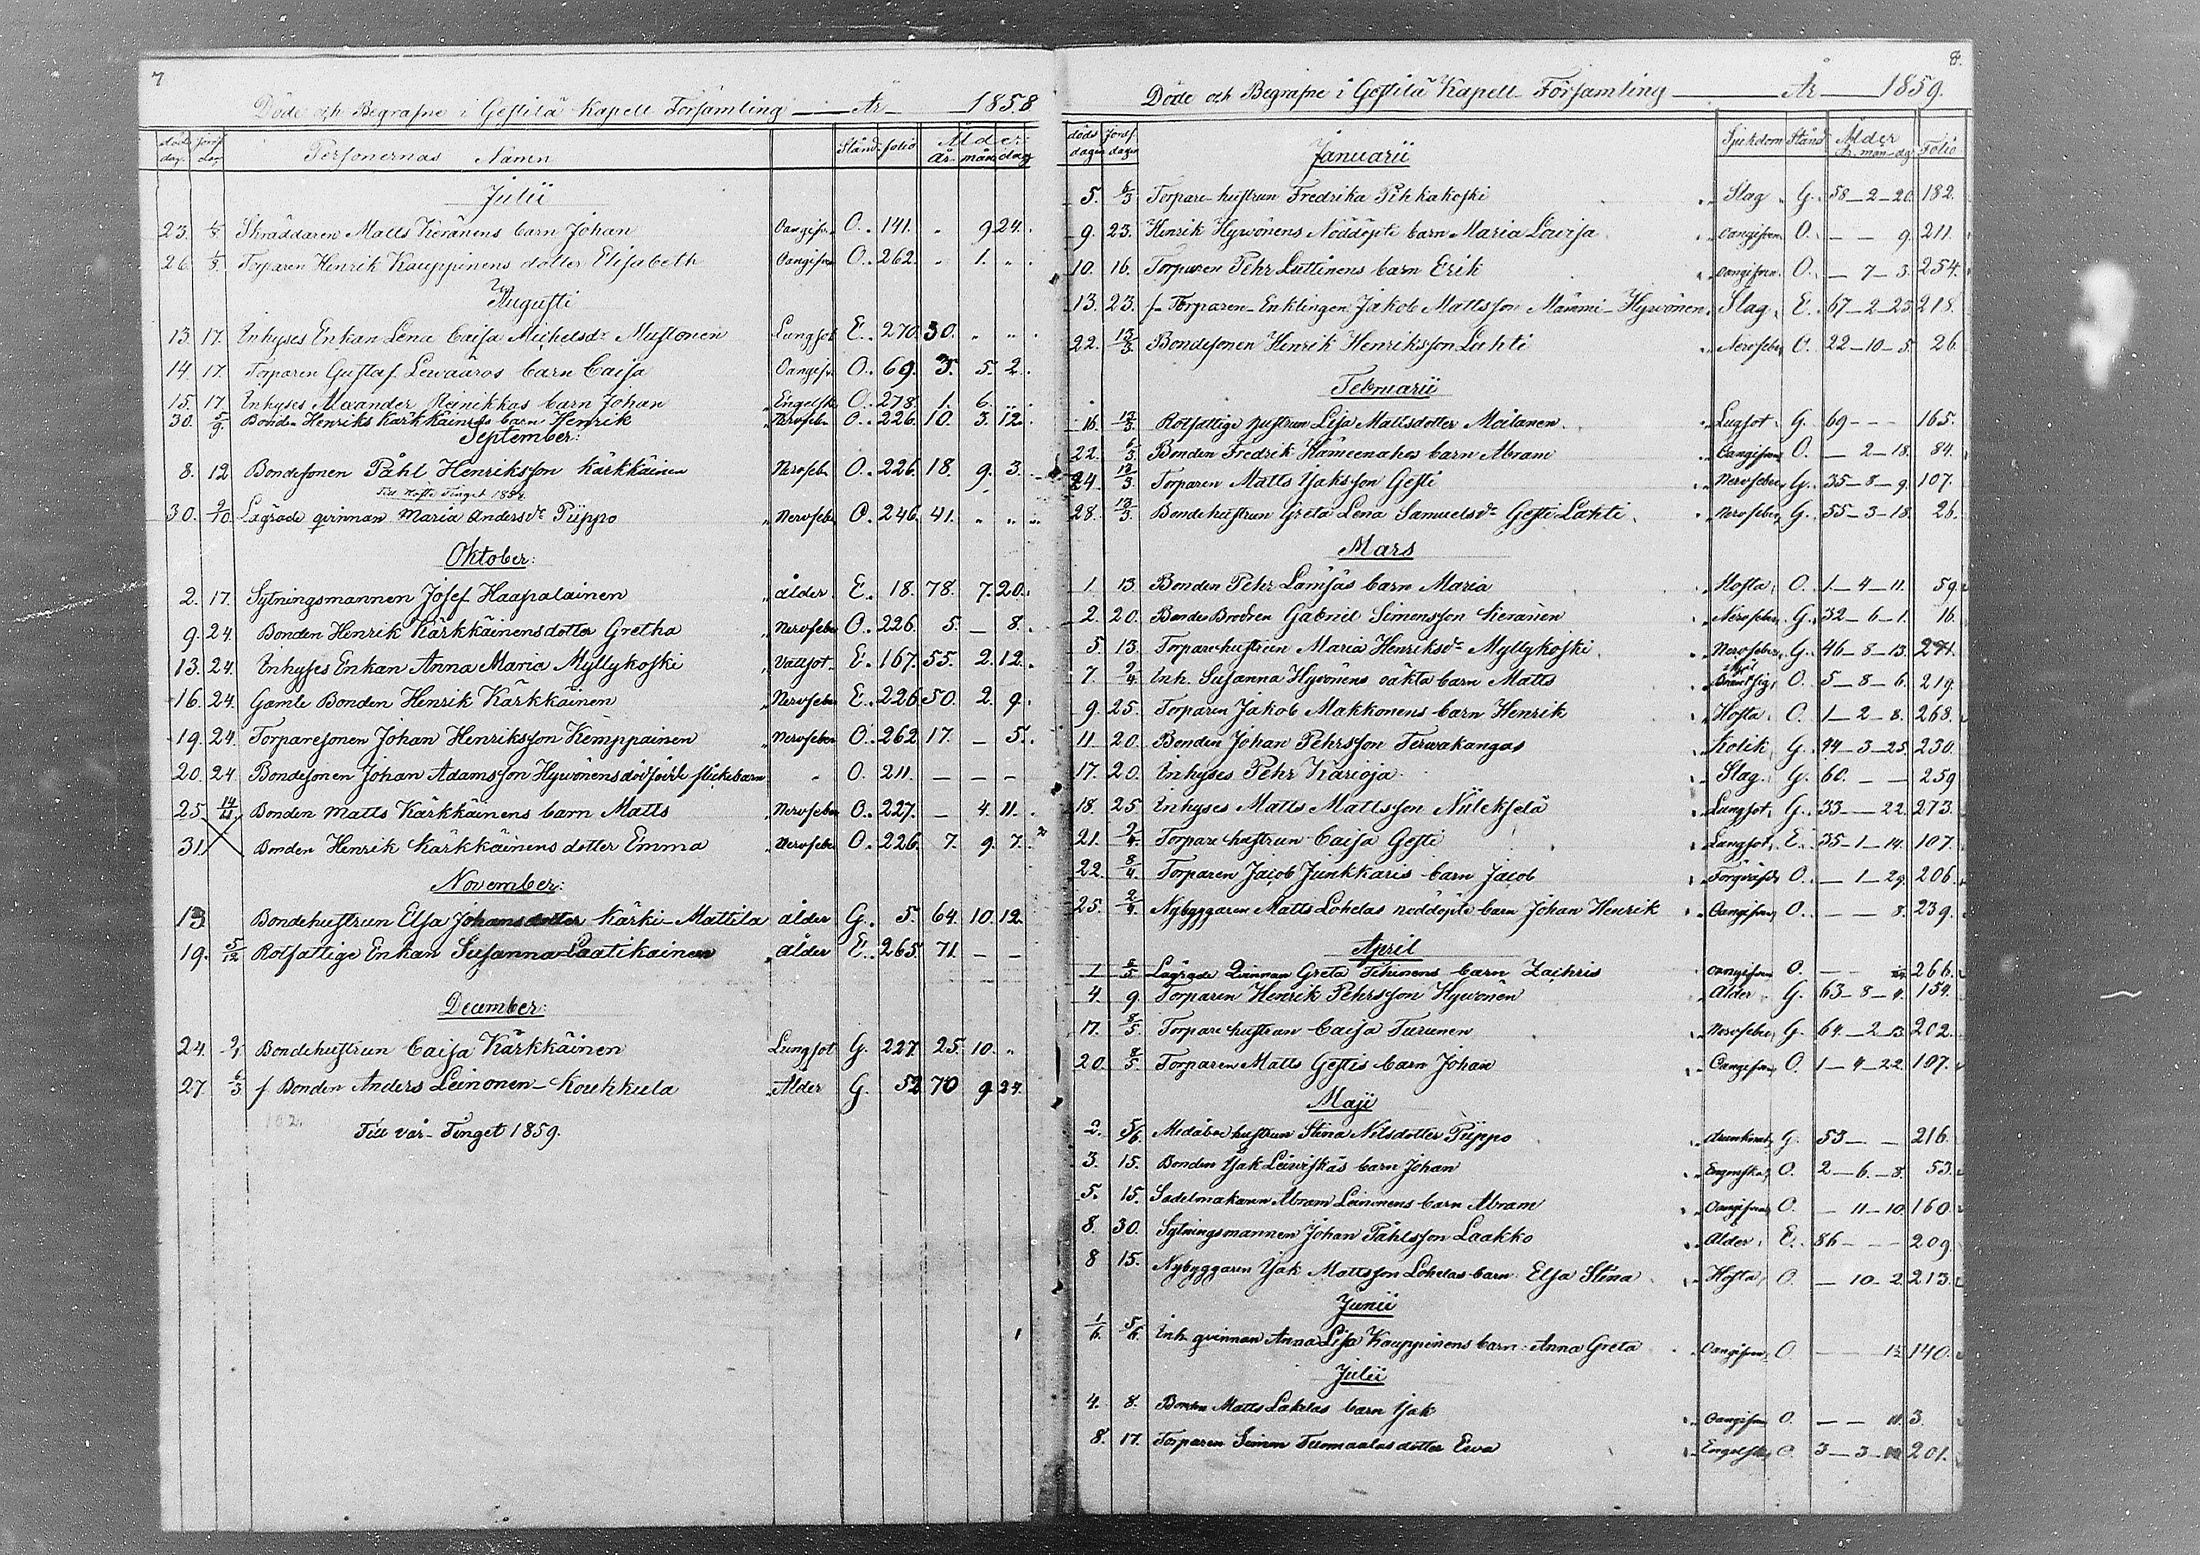 7
Döde och Begrafne i Gestilä Kapell Församling — År — 1858
döds dag. jord. dag. Personernas Namn Stånd. folio Ålder år. mån. dag
Julii
23. Skräddaren Matts Keränens barn Johan Oangifven O. 141. „ 9 24.
26. Torparen Henrik Kauppinens dotter Elisabeth Oangifven O. 262. „ 1. „
Augusti
13. 17. Inhyses Enkan Lena Caisa Michelsdr Mustonen Lungsot E. 270. 30. „ „
14. 17. Torparen Gustaf barn Caisa Oangifv. O. 69. 3. 5. 2.
15. 17. Inhyses Alexander Reinikkas barn Johan Engelsk O. 278. 1. 6. „
30. 5/9 Bonden Henriks Kärkkäinens barn Henrik Nervfeber O. 226. 10. 3. 12.
September:
8. 12 Bondesonen Påhl Henriksson Kärkkäinen Nervfeb. O. 226. 18. 9. 3.
Till Höste Tinget 1858.
30. 9/10 Lägrade qvinnan Maria Andersdr Piippo Nervfeber O. 246. 41. „ „
Oktober:
2. 17. Sytningsmannen Josef Haapalainen ålder E. 18. 78. 7. 20.
9. 24. Bonden Henrik Kärkkäinens dotter Gretha Nervfeber O. 226. 5. — 8.
13. 24. Inhyses Enkan Anna Maria Myllykoski Vattsot E. 167. 55. 2. 12.
16. 24. Gamle Bonden Henrik Kärkkäinen Nervfeber E. 226 50. 2. 9.
19. 24. Torparesonen Johan Henriksson Kemppainen Nervfeber O. 262 17. — 5.
20. 24. Bondesonen Johan Adamsson Hyvönens dödfödde flickebarn „ O. 211. — — —
25. 14/11 Bonden Matts Kärkkäinens barn Matts Nervfeber O. 227. — 4. 11.
31. Bonden Henrik Kärkkäinens dotter Emma Nervfeber O. 226. 7. 9. 7.
November:
13 Bondehustrun Elsa Johansdotter Kärki-Mattila ålder G. 5. 64. 10. 12.
19. 5/12 Rotfattige Enkan Susanna Laatikainen ålder E. 265. 71. — —
December:
24. 2/1 Bondehustrun Caisa Kärkkäinen Lungsot G. 227 25. 10. „
27. 6/3 f Bonden Anders Leinonen-Koukkula Ålder G. 52 70 9 27.
Till vår-Tinget 1859.
8.
Döde och Begrafne i Gestilä Kapell-Församling — År — 1859.
döds dagen jord. dagen Januarii Sjukdom Stånd Ålder år. mån. dag Folio
5. 6/3 Torpare-hustrun Fredrika Pihkakoski Slag G. 58—2—20. 182.
9. 23. Henrik Hyvönens Nöddöpte barn Maria Lovisa oangifven O. — — 9. 211.
10. 16. Torparen Pehr Luttinens barn Erik oangifven O. — 7—3. 254.
13. 23. f. Torparen-Enklingen Jakob Mattsson Mämmi-Hyvönen Slag. E. 67—2—23 218.
22. 13/3 Bondesonen Henrik Henriksson Lahti Nervfeber O. 22—10—5. 26.
Februarii
16. 13/3 Rotfattige hustrun Lisa Mattsdotter Moilanen Lugsot G. 69 — — 165.
22. 6/3 Bonden Fredrik Hämeenahos barn Abram Oangifven O. — 2—18. 84.
24. 13/3 Torparen Matts Isaksson Gesti Nervfeber G. 35—8—9. 107.
28. 13/3 Bondehustrun Greta Lena Samuelsdr Gesti Lahti Nervfeber G. 55—3—18. 26.
Mars
1. 13 Bonden Pehr Lamsäs barn Maria Hosta O. 1—4—11. 59
2. 20. Bonde Brodren Gabriel Simonsson Keränen Nervfeber G. 32—6—1. 16.
5. 13. Torparehustrun Maria Henriksdr Myllykoski Nervfeber G. 46—8—13. 271.
7. 2/4 Inh. Susanna Hyvönens oäkta barn Matts O. 5—8—6. 219.
9. 25. Torparen Jakob Makkonens barn Henrik Hosta O. 1—2—8. 268.
11 20. Bonden Johan Pehrsson Tervakangas Kolik G. 44—3—25. 230.
17. 20. Inhyses Pehr Karioja Slag G. 60. — — 259
18. 25 Inhyses Matts Mattsson Niilekselä Lungsot G. 33—22. 273.
21. 2/4 Torpare hustrun Caisa Gesti Lungsot E. 35—1—14. 107.
22. 8/4 Torparen Jacob Junkkaris barn Jacob O. — 1—29. 206.
25. 2/4 Nybyggaren Matts Lohelas nöddöpte barn Johan Henrik Oangifven O. — — 8. 239.
April
1 6/5 Lägrade Qvinnan Greta Tihinens barn Zachris oangifven O. — 266.
4. 9. Torparen Henrik Pehrsson Hyvönen Ålder G. 63—8—4. 154.
17. 8/5 Torpare hustrun Caisa Turunen Nervfeber G. 64—2—13. 202.
20. 8/5 Torparen Matts Gestis barn Johan Oangifven O. 1—4—22. 107.
Maji
2. 5/6 hustrun Stina Nilsdotter Piippo G. 53 — — 216.
3. 15. Bonden Isak Leiviskäs barn Johan Engelska O. 2—6—8. 53.
5. 15. Sadelmakaren Abram Leinonens barn Abram oangifven O. — 11—10. 160.
8. 30. Sytningsmannen Johan Påhlsson Laakko Ålder E. 86 — — 209
8 15. Nybyggaren Isak Mattsson Lohelas barn Elsa Stina Hosta O. — 10—2. 213.
Junii
1/6 5/6 Inh. qvinnan Anna Lisa Kauppinens barn Anna Greta Oangifven O. — — 140.
Julii
4. 8. Bonden Matts Lakelas barn Isak oangifven O. — — 3.
8. 17. Torparen Simon Tuomaalas dotter Eva Engelska O. 3—3 201.